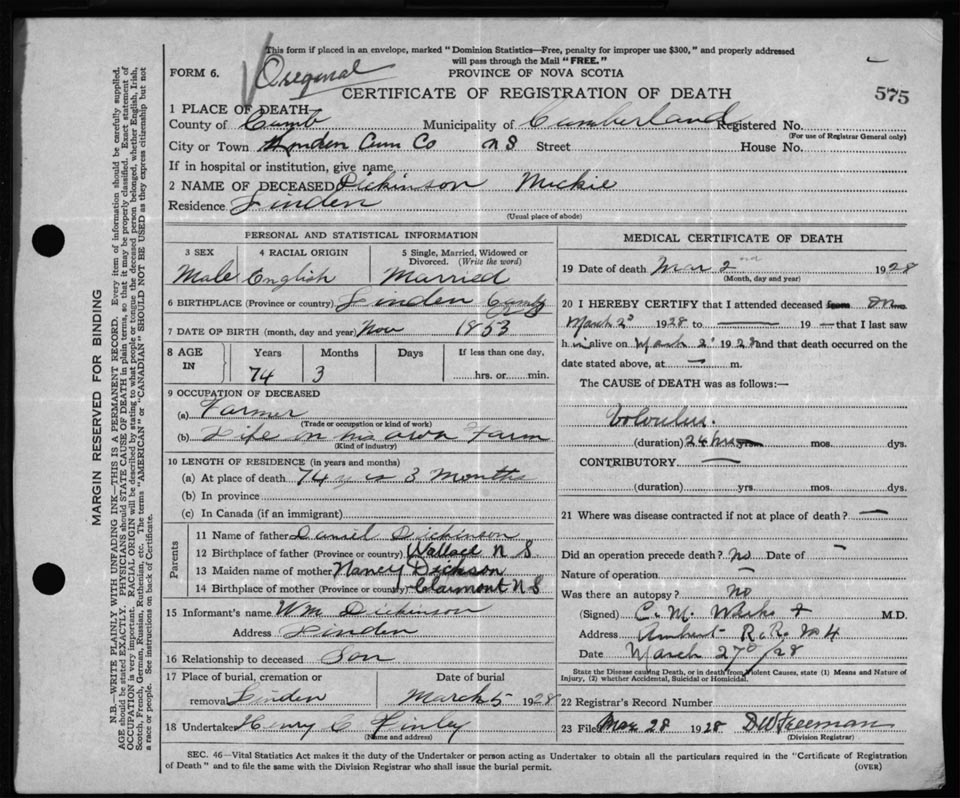 This form if placed in an envelope, marked "Dominion Statistics—Free, penalty for improper use $300," and properly addressed
will pass through the Mail "FREE."
FORM 6.
Oreginal
PROVINCE OF NOVA SCOTIA
CERTIFICATE OF REGISTRATION OF DEATH
575
1 PLACE OF DEATH
County of Cumb Municipality of Cumberland Registered No.
(For use of Registrar General only)
City or Town Linden Cum Co N S Street House No.
If in hospital or institution, give name
2 NAME OF DECEASED Dickinson Muckie
Residence Linden
(Usual place of abode)
PERSONAL AND STATISTICAL INFORMATION
3 SEX 4 RACIAL ORIGIN 5 Single, Married, Widowed or
Divorced. (Write the word)
Male English Married
6 BIRTHPLACE (Province or country) Linden Cumb
7 DATE OF BIRTH (month, day and year) Nov 1853
8 AGE IN Years Months Days If less than one day,
74 3 hrs. or min.
9 OCCUPATION OF DECEASED
(a) Farmer
(Trade or occupation or kind of work)
(b) Life on his own Farm
(Kind of industry)
10 LENGTH OF RESIDENCE (in years and months)
(a) At place of death 74 3 Months
(b) In province
(c) In Canada (if an immigrant)
Parents
11 Name of father Daniel Dickinson
12 Birthplace of father (Province or country) Wallace N S
13 Maiden name of mother Nancy Dickson
14 Birthplace of mother (Province or country) Claremont N S
15 Informant's name Wm Dickinson
Address Linden
16 Relationship to deceased Son
17 Place of burial, cremation or Date of burial
removal Linden March 5 1928
18 Undertaker Henry C Finley
(Name and address)
MEDICAL CERTIFICATE OF DEATH
19 Date of death Mar 2nd 1928
(Month, day and year)
20 I HEREBY CERTIFY that I attended deceased from on
March 2 1928 to — 19 — that I last saw
him alive on March 2 1928 and that death occurred on the
date stated above, at — m.
The CAUSE of DEATH was as follows:—
Volvulus.
(duration) 24 hrs yrs. mos. dys.
CONTRIBUTORY —
(duration) yrs. mos. dys.
21 Where was disease contracted if not at place of death? —
Did an operation precede death? no Date of —
Nature of operation —
Was there an autopsy? no
(Signed) C. M. M.D.
Address Amherst R.R. No 4
Date March 27/28
State the Disease causing Death, or in death from Violent Causes, state (1) Means and Nature of
Injury, (2) whether Accidental, Suicidal or Homicidal.
22 Registrar's Record Number
23 Filed Mar 28 1928 D W Freeman
(Division Registrar)
SEC. 46—Vital Statistics Act makes it the duty of the Undertaker or person acting as Undertaker to obtain all the particulars required in the "Certificate of Registration
of Death" and to file the same with the Division Registrar who shall issue the burial permit.
(OVER)
MARGIN RESERVED FOR BINDING
N.B.—WRITE PLAINLY WITH UNFADING INK—THIS IS A PERMANENT RECORD. Every item of information should be carefully supplied.
AGE should be stated EXACTLY. PHYSICIANS should STATE CAUSE OF DEATH in plain terms, so that it may be properly classified. Exact statement of
OCCUPATION is very important. RACIAL ORIGIN will be described by stating to what people or tongue the deceased person belonged, whether English, Irish,
Scotch, French, German, Russian, Ruthenian, etc. The terms "AMERICAN" or "CANADIAN" SHOULD NOT BE USED as they express citizenship but not
a race or people. See instructions on back of Certificate.